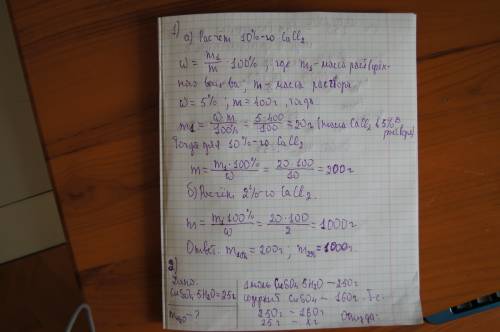 1)
а) Расчёт 10%-го CaCl₂
ω = m₁/m · 100%, где m₁ - масса растворён-
ного вещ-ва; m - масса раствора.
ω = 5%; m = 400г, тогда
m₁ = ω·m/100% = 5·400/100 = 20г (масса CaCl₂ в 5%-м растворе)
Тогда для 10%-го CaCl₂
m = m₁·100%/ω = 20·100/10 = 200г
б) Расчёт 2%-го CaCl₂.
m = m₁100%/ω = 20·100/2 = 1000г.
Ответ: m₁₀% = 200г; m₂% = 1000г.
2)
Дано:
CuSO₄·5H₂O = 25г
1 моль CuSO₄·5H₂O - 250г
содержит CuSO₄ - 160г. Т.е.
250г - 160г
25г - xг
Откуда: